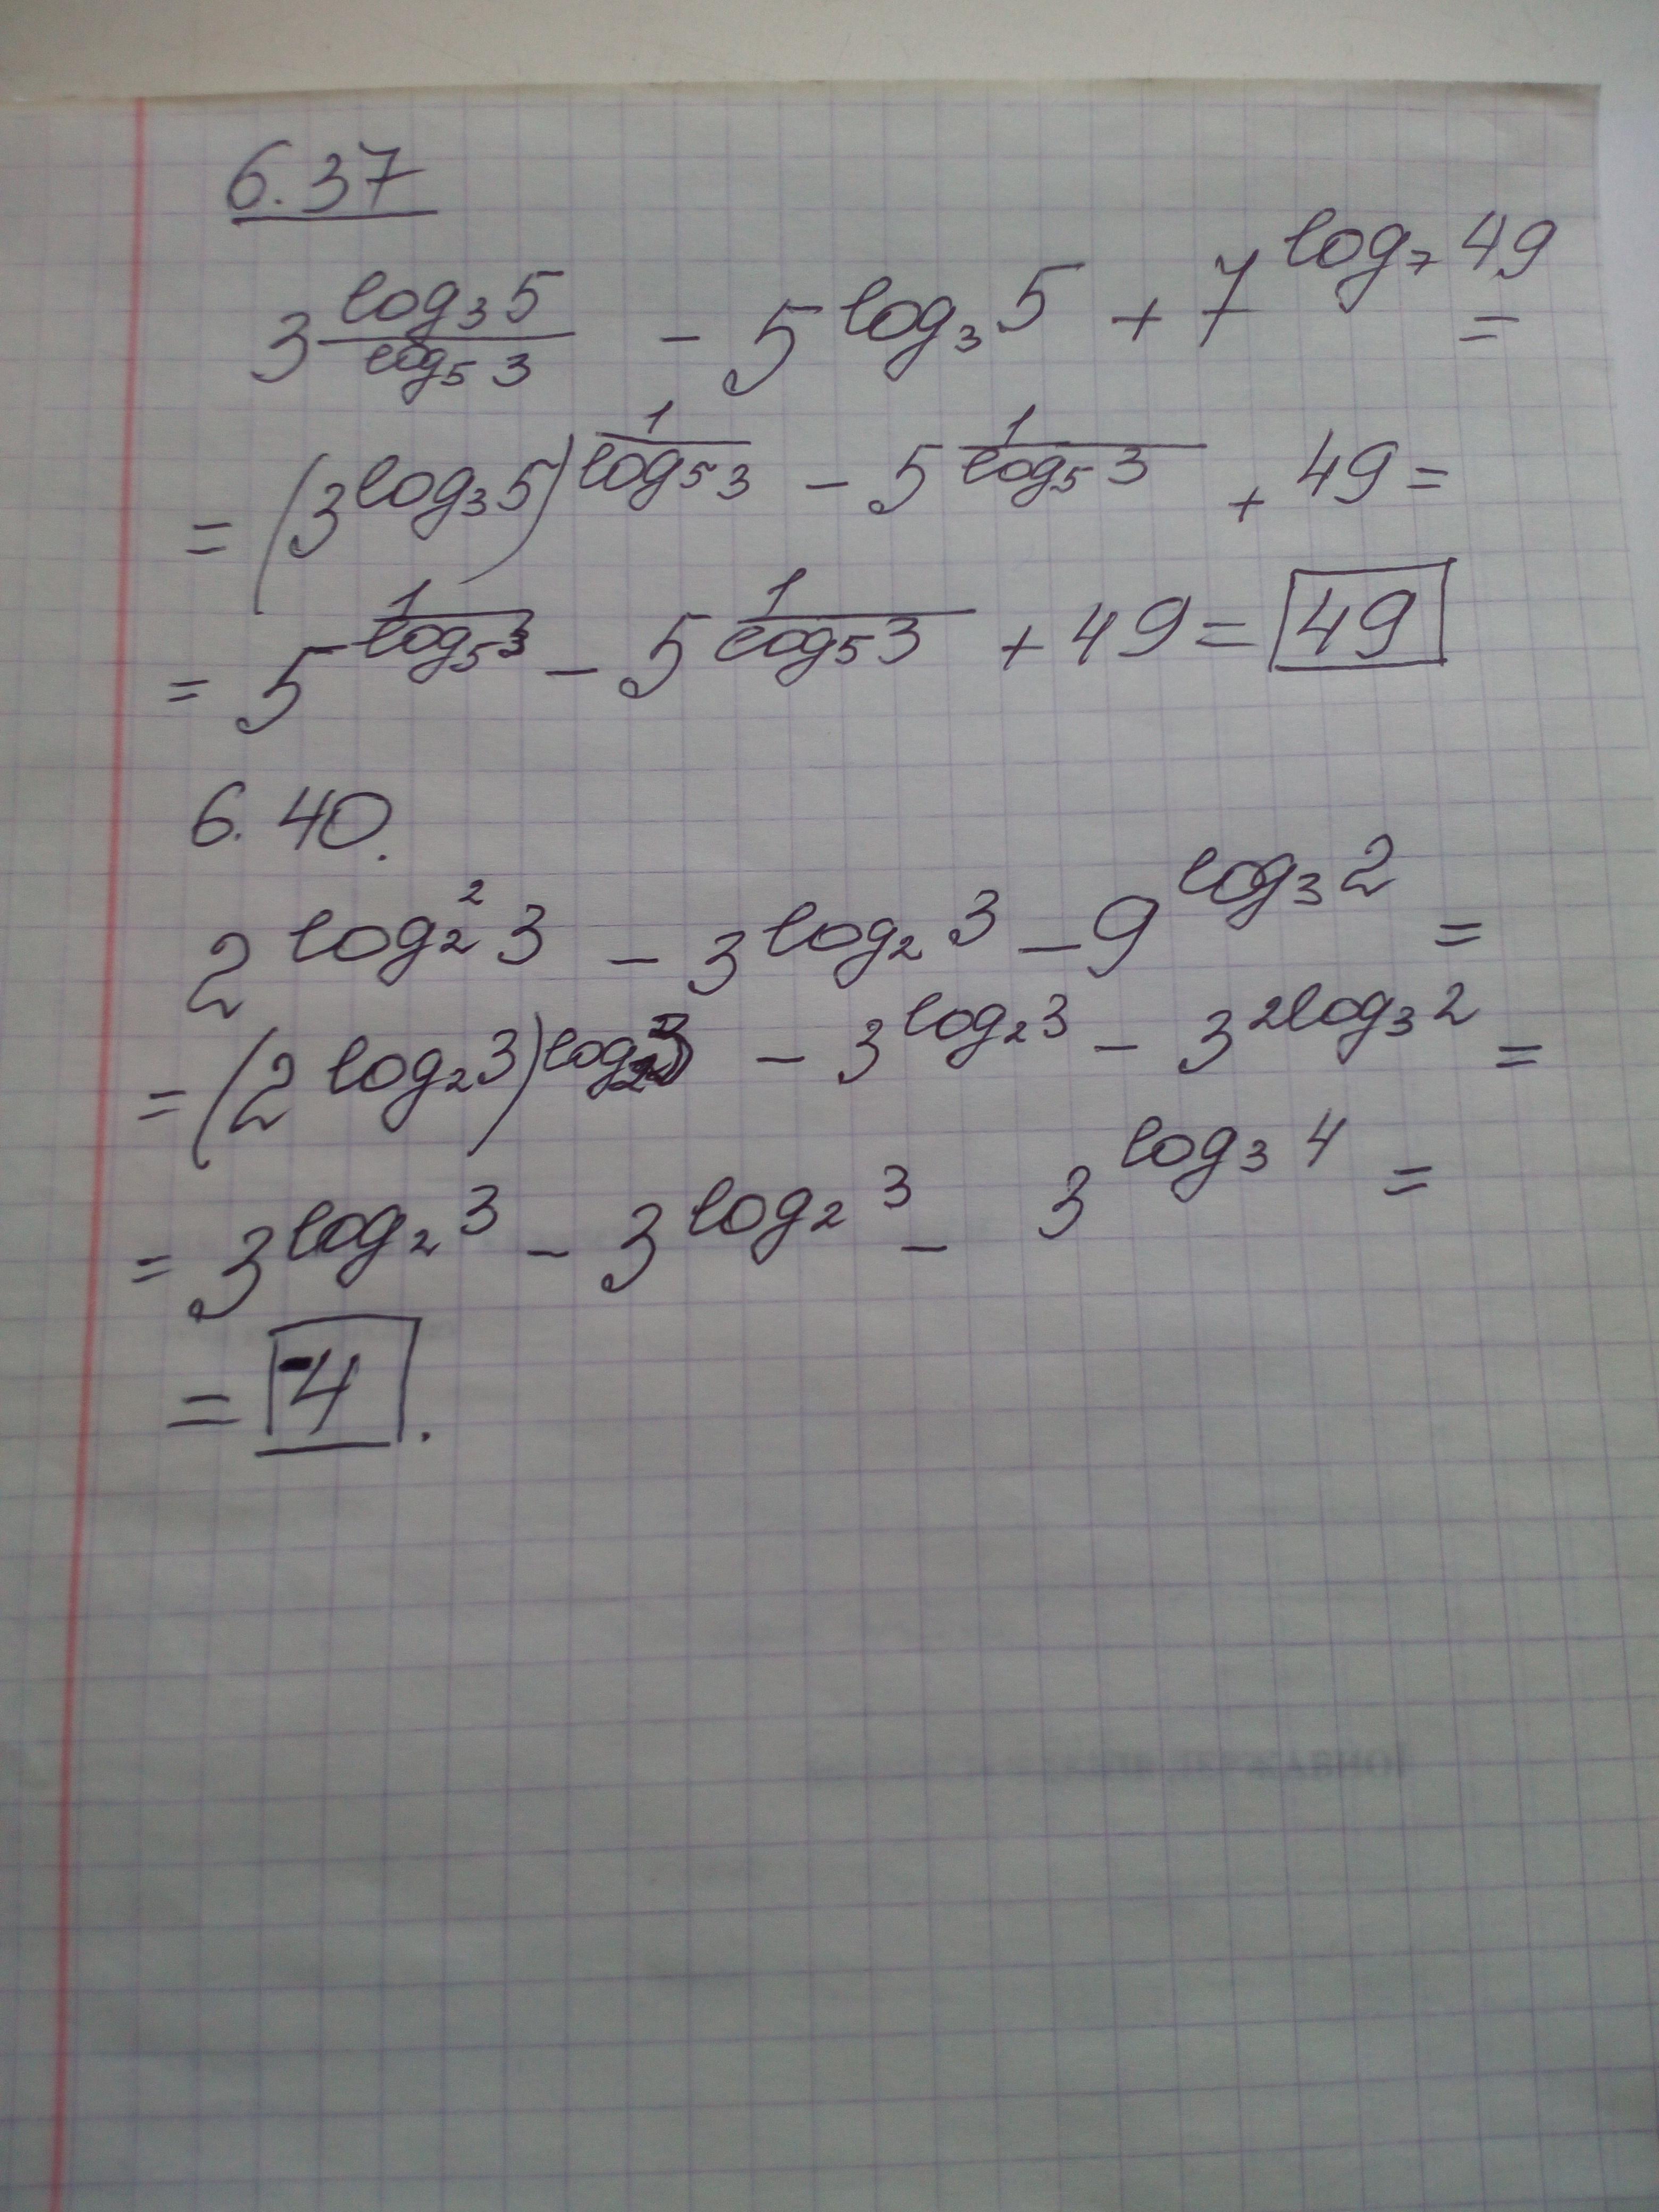 6.37
3^(log₃5/log₅3) - 5^(log₃5) + 7^(log₇49) =
= (3^(log₃5))^(1/log₅3) - 5^(1/log₅3) + 49 =
= 5^(1/log₅3) - 5^(1/log₅3) + 49 = 49
6.40.
2^(log₂²3) - 3^(log₂3) - 9^(log₃2) =
= (2^(log₂3))^(log₂3) - 3^(log₂3) - 3^(2log₃2) =
= 3^(log₂3) - 3^(log₂3) - 3^(log₃4) =
= -4.